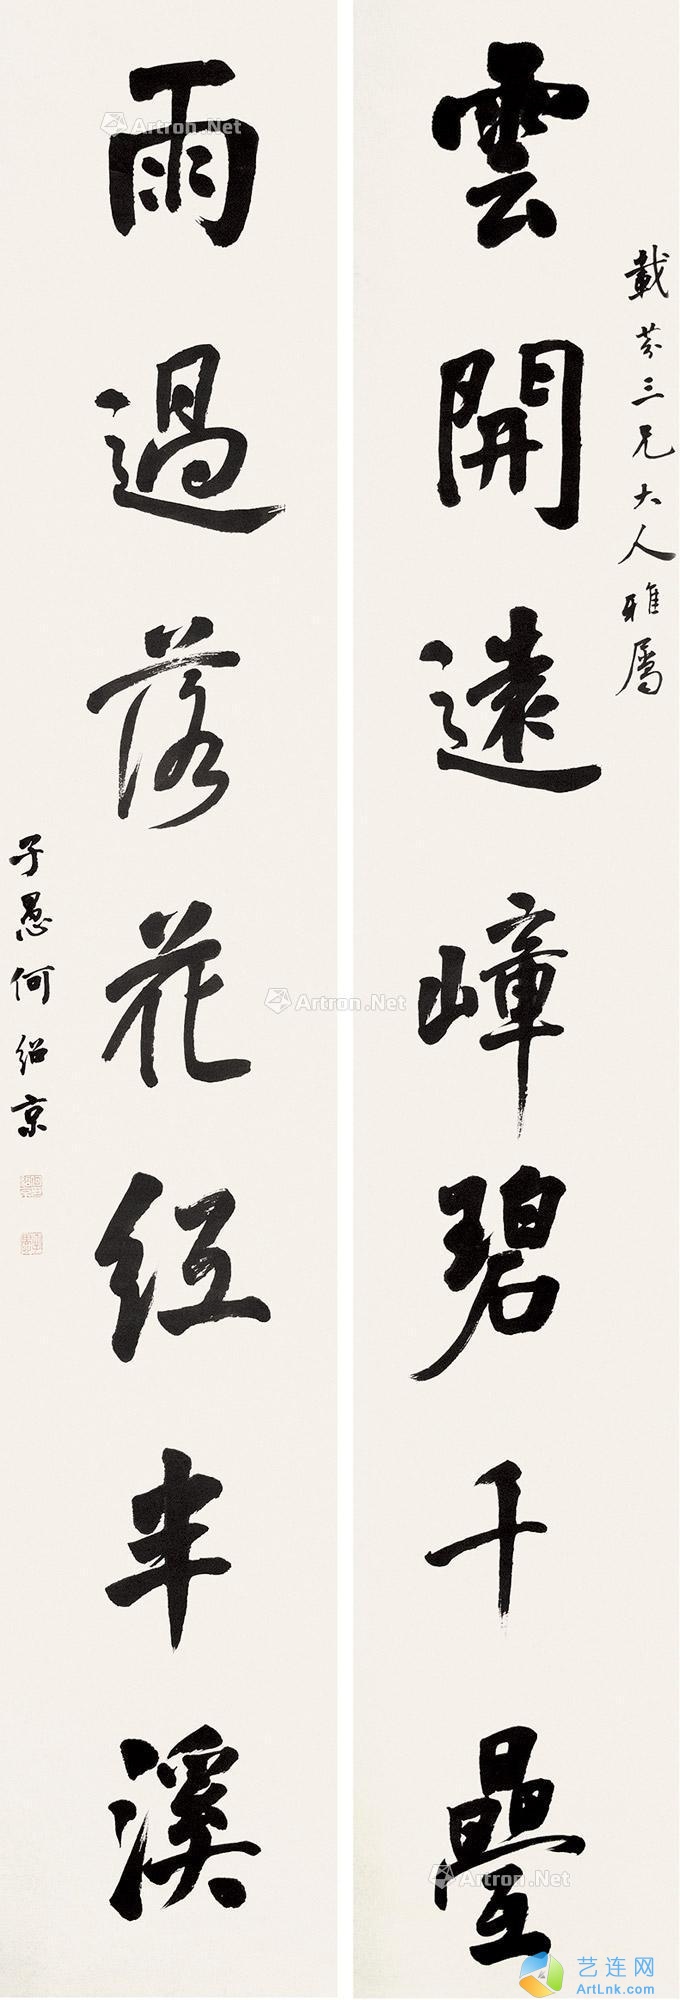 載芬三兄大人雅屬
雲開遠嶂碧千疊
雨過落花紅半溪
子愚何紹京
Artron.Net
Artron.Net
Artron.Net
艺连网
ArtLnk.com